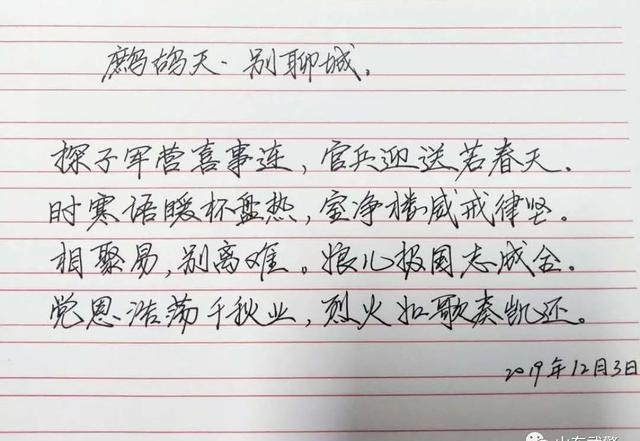 鹧鸪天·别聊城。
探子军营喜事连，官兵迎送若春天。
时寒语暖杯盘热，室净楼威戒律坚。
相聚易，别离难。娘儿报国志成全。
党恩浩荡千秋业，烈火如歌奏凯还。
2019年12月3日
山东武警